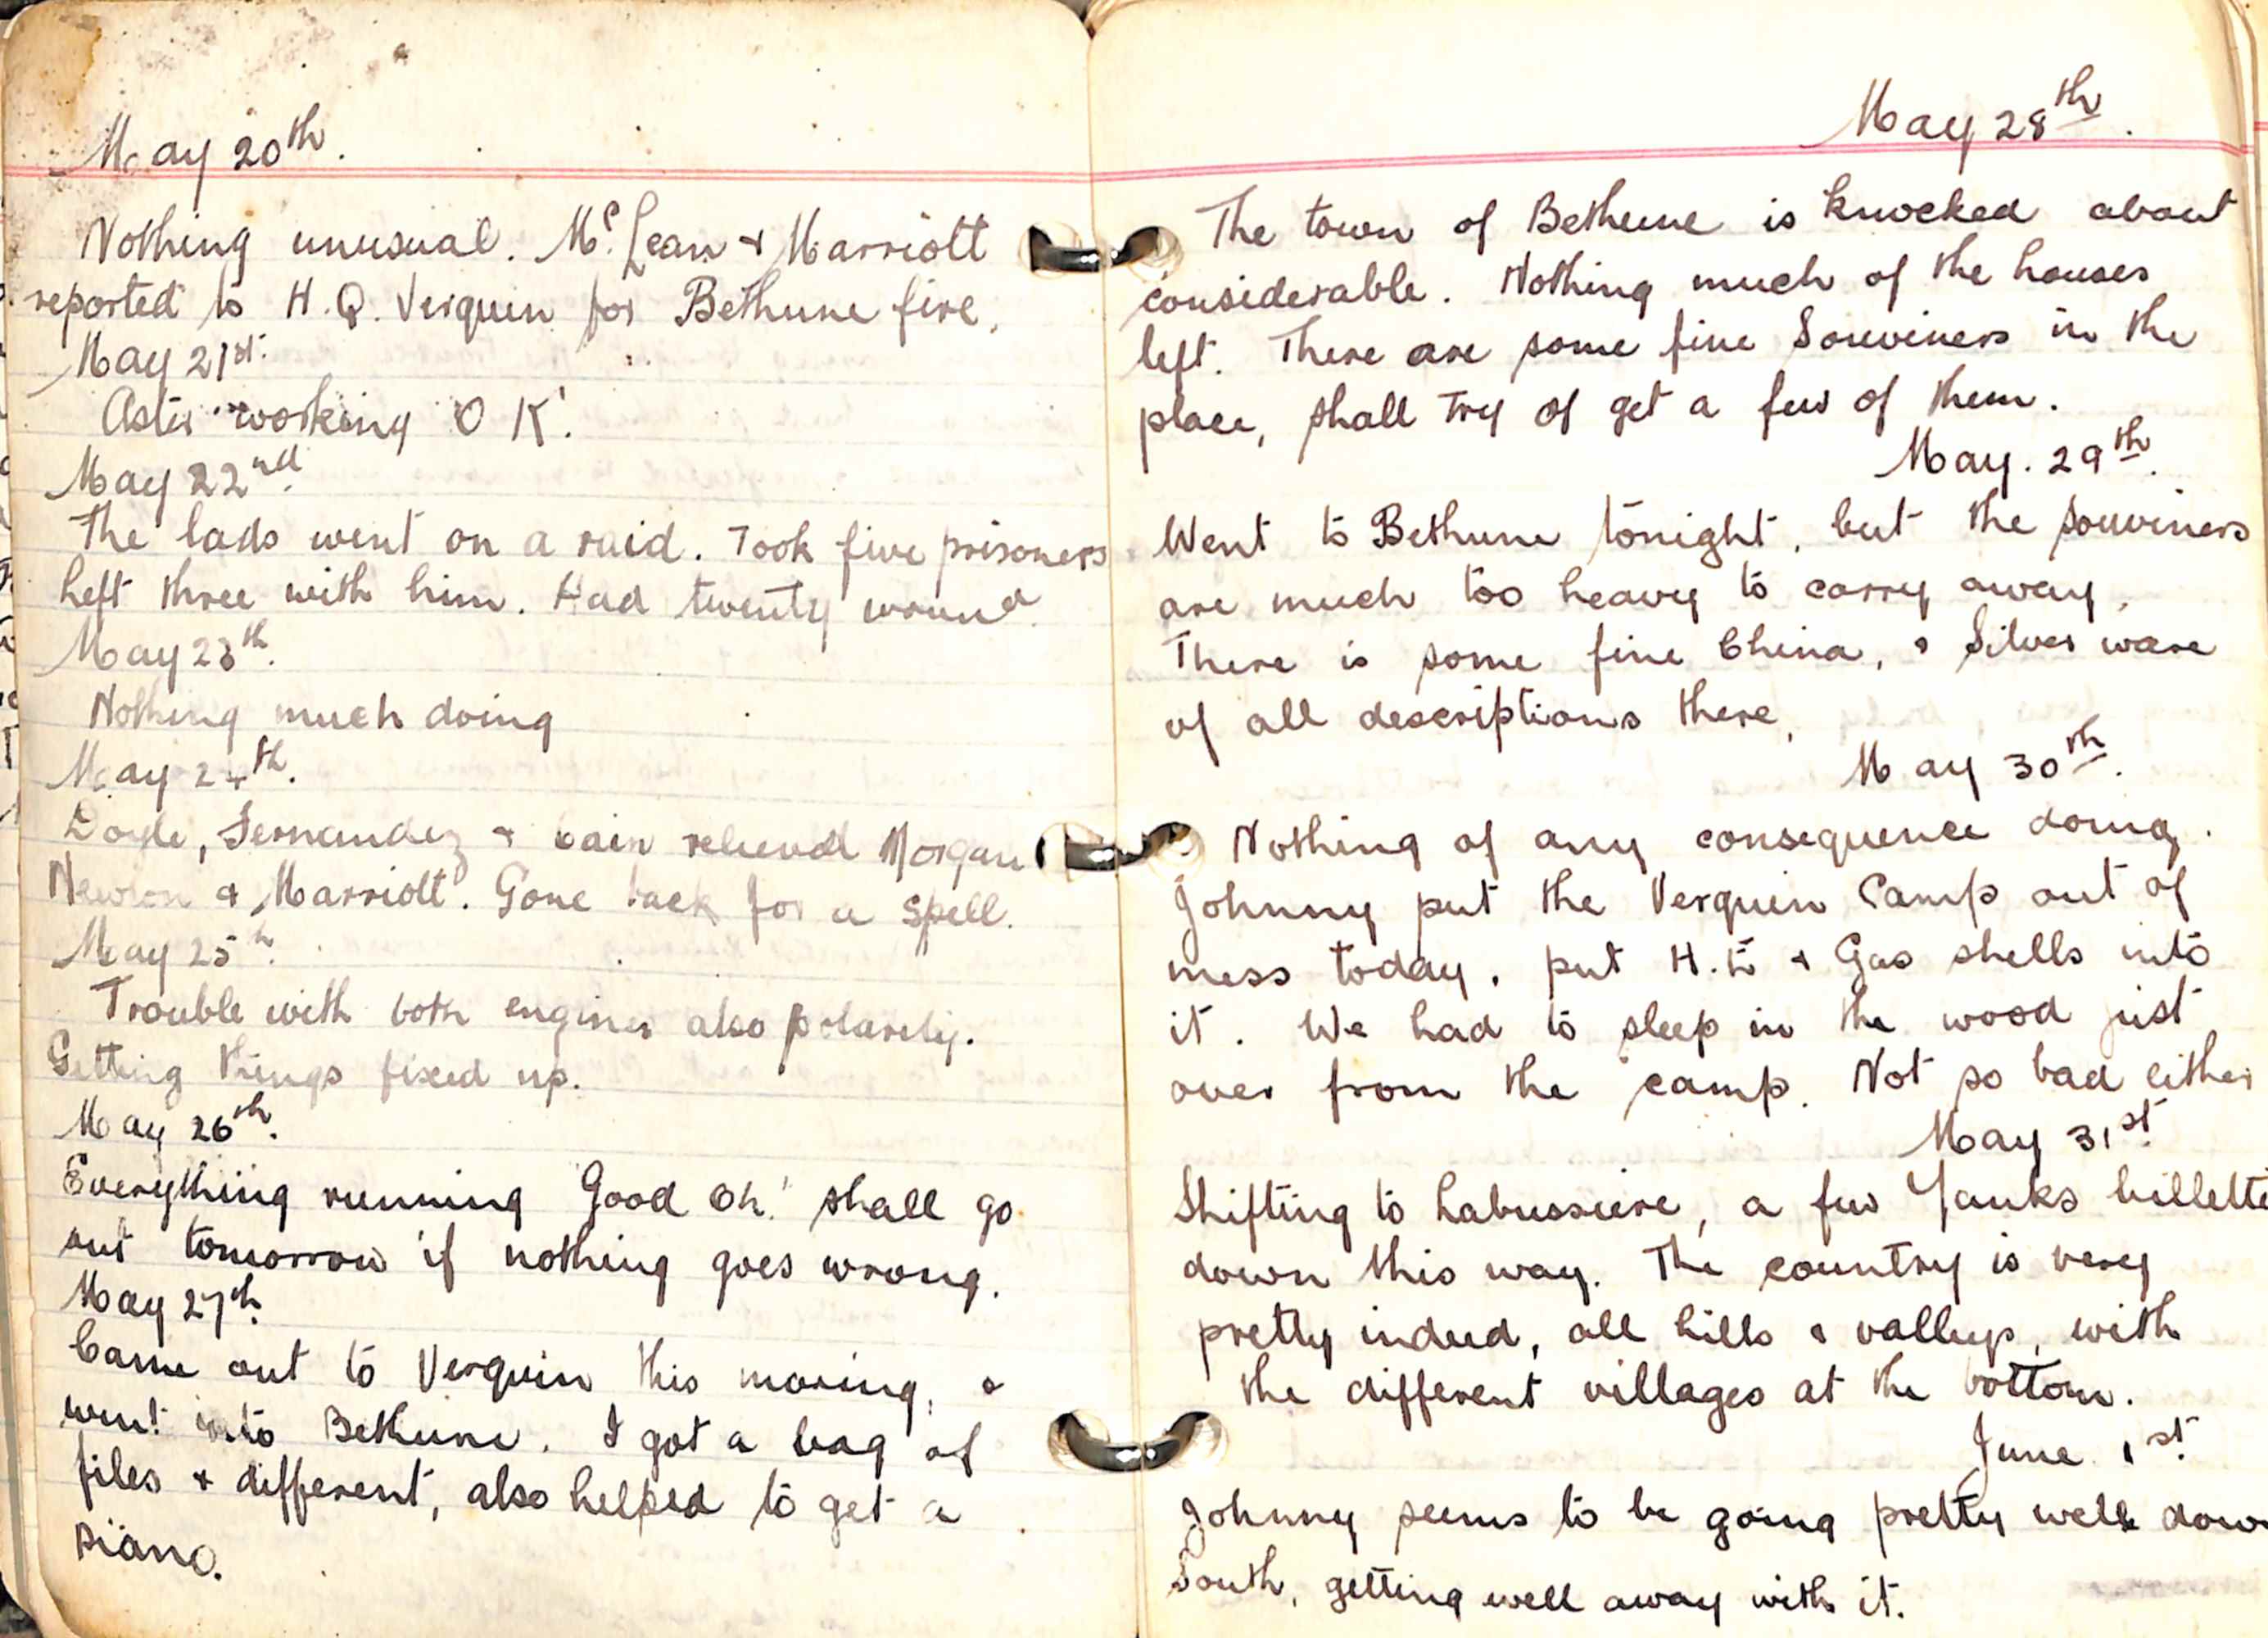 May 20th.
Nothing unusual. Mc Lean & Marriott
reported to H.Q. Verquin for Bethune fire.
May 21st.
working O K'.
May 22nd.
The lads went on a raid. Took five prisoners
Left three with him. Had twenty wound
May 23th.
Nothing much doing
May 24th.
Doyle, Fernandez & Cain relieved Morgan
Newton & Marriott. Gone back for a spell.
May 25th.
Trouble with both engines also polarity.
Getting things fixed up.
May 26th.
Everything running 'Good Oh.' shall go
out tomorrow if nothing goes wrong.
May 27th.
Came out to Verquin this moring, &
went into Bethune. I got a bag of
files & different, also helped to get a
piano.
May 28th.
The town of Bethune is knocked about
considerable. Nothing much of the houses
left. There are some fine Souviners in the
place, shall try of get a few of them.
May. 29th.
Went to Bethune tonight, but the souviners
are much too heavy to carry away.
There is some fine China, & Silver ware
of all descriptions there.
May 30th.
Nothing of any consequence doing.
Johnny put the Verquin Camp out of
mess today. put H.E & Gas shells into
it. We had to sleep in the wood just
over from the camp. Not so bad either
May 31st.
Shifting to Labussiere, a few Yanks billette
down this way. The country is very
pretty indeed, all hills & valleys, with
the different villages at the bottom.
June 1st.
Johnny seems to be going pretty well down
South, getting well away with it.